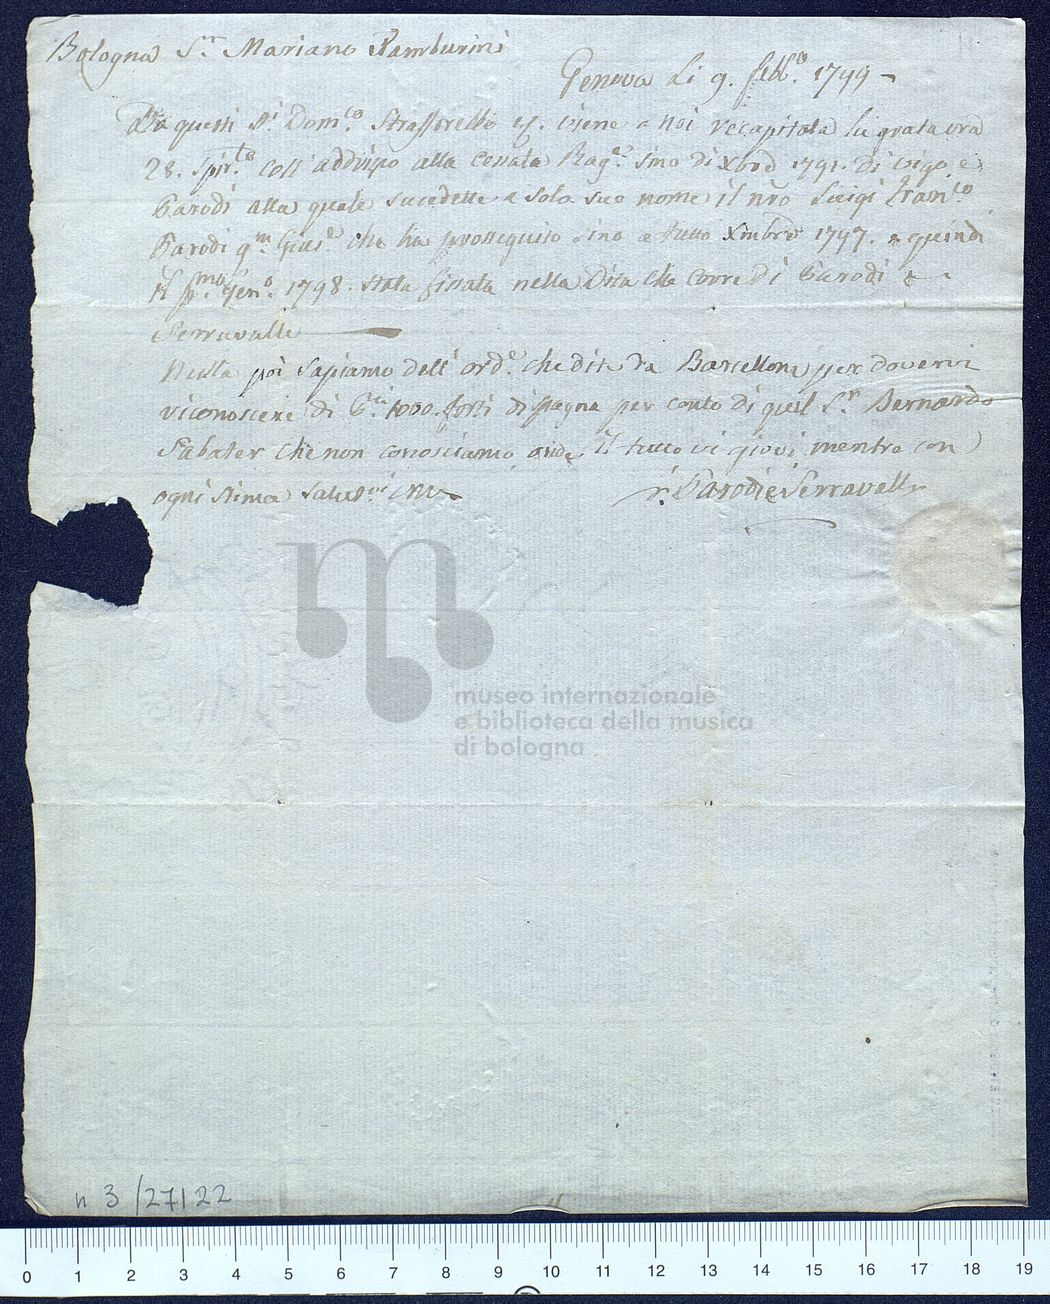 Bologna Sr. Mariano Tamburini
Genova Li 9. febb.o 1799 -
Da questi Si. Dom.co Strafforello viene a noi recapitata la grata vra
28. coll' addrizzo alla Cessata Rag.e sino di Xbre 1791. di Vigo, e
Parodi alla quale succedette a solo suo nome il nro Luigi Fran.co
Parodi q.m Gius.e che ha prosseguito sino a tutto Xmbre 1797. e quindi
p.mo Gen.o 1798. stata fissata nella Ditta che corre di Parodi e
Serravalle
Nulla poi sapiamo dell' ord.e che dite da Barcellona per dovervi
riconoscere di 1000. forti di spagna per conto di quel Sr. Bernardo
Sabater che non conosciamo, onde il tutto vi giovi mentre con
ogni stima
Parodi e Serravalle
museo internazionale
e biblioteca della musica
di bologna
n 3 /27122
0 1 2 3 4 5 6 7 8 9 10 11 12 13 14 15 16 17 18 19